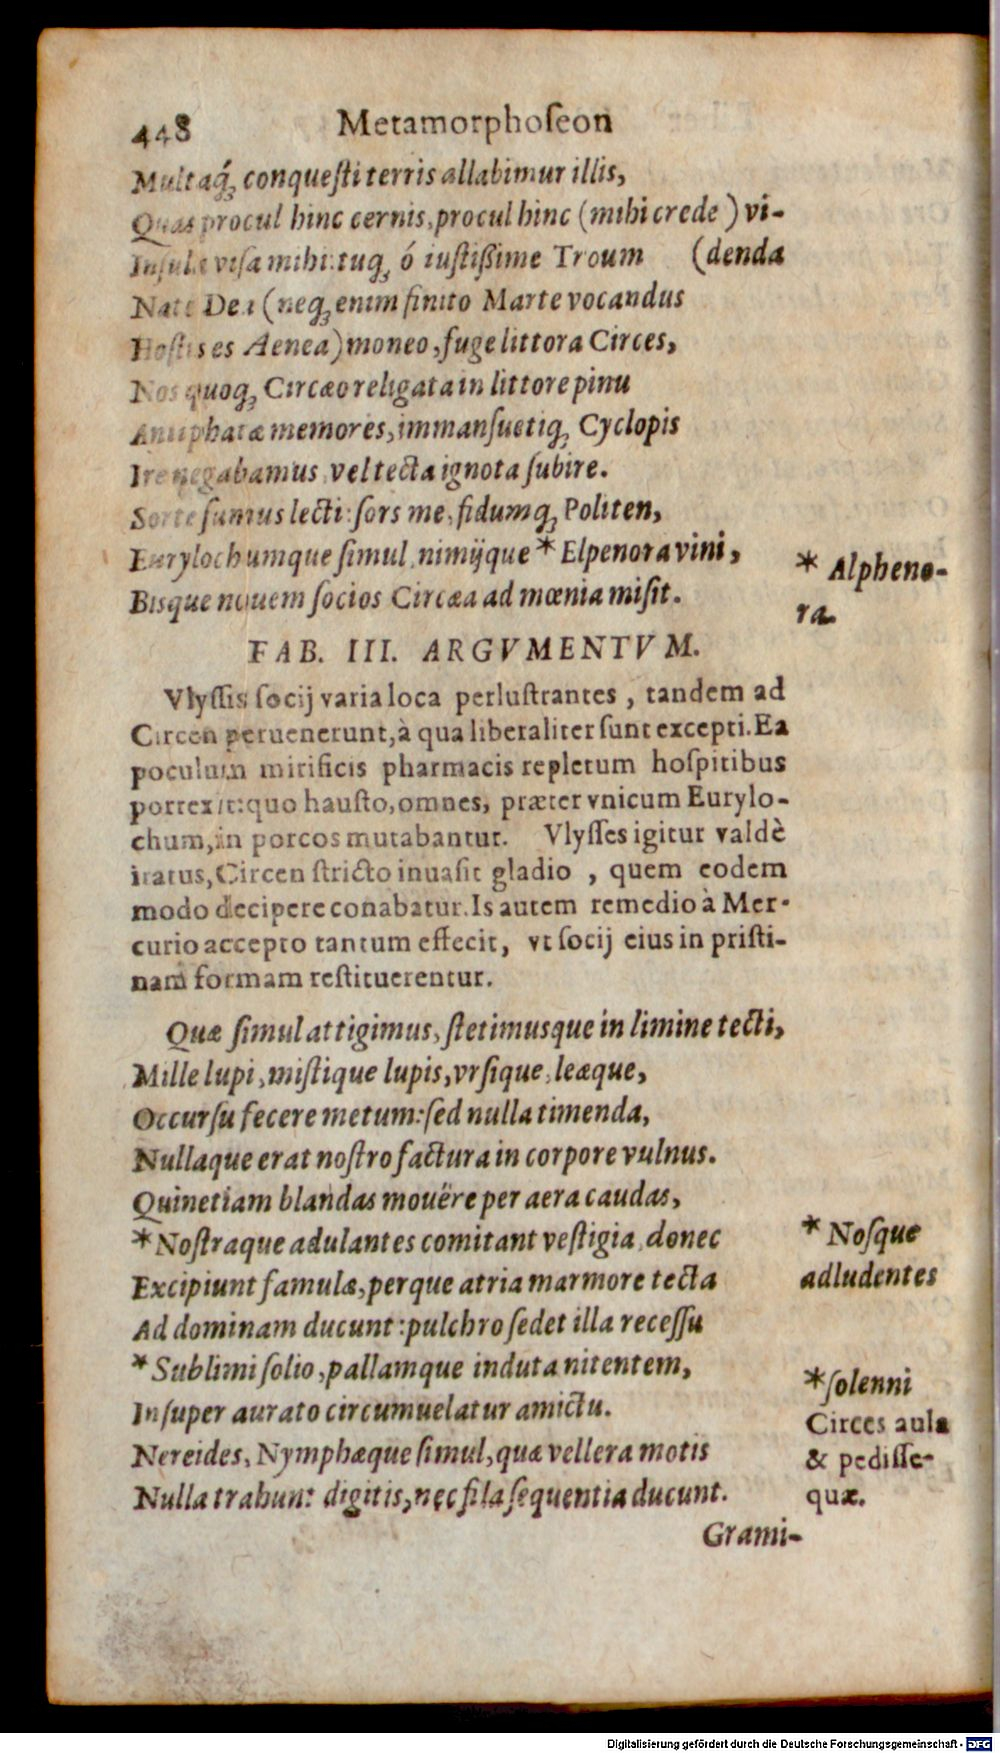 448 Metamorphoſeon
Multaq́; conqueſti terris allabimur illis,
Quas procul hinc cernis, procul hinc (mihi crede) vi-
Inſula viſa mihi: tuq; ó iuſtißime Troum (denda
Nate Dea (neq; enim finito Marte vocandus
Hoſtis es Aenea) moneo, fuge littora Circes,
Nos quoq; Circæo religata in littore pinu
Antiphatæ memores, immanſuetiq; Cyclopis
Ire negabamus, vel tecta ignota ſubire.
Sorte ſumus lecti: ſors me, fidumq; Politen,
Eurylochumque ſimul, nimijque * Elpenora vini,
* Alpheno-
ra.
Bisque nouem ſocios Circæa ad mœnia miſit.
FAB. III. ARGVMENTVM.
Vlyſſis ſocij varia loca perluſtrantes, tandem ad
Circen peruenerunt, à qua liberaliter ſunt excepti. Ea
poculum mirificis pharmacis repletum hoſpitibus
porrexit: quo hauſto, omnes, præter vnicum Eurylo-
chum, in porcos mutabantur. Vlyſſes igitur valdè
iratus, Circen ſtricto inuaſit gladio, quem eodem
modo decipere conabatur. Is autem remedio à Mer-
curio accepto tantum effecit, vt ſocij eius in priſti-
nam formam reſtituerentur.
Quæ ſimul attigimus, ſtetimusque in limine tecti,
Mille lupi, miſtique lupis, vrſique, leæque,
Occurſu fecere metum: ſed nulla timenda,
Nullaque erat noſtro factura in corpore vulnus.
Quinetiam blandas mouëre per aera caudas,
* Noſtraque adulantes comitant veſtigia, donec
* Noſque
adludentes
Excipiunt famulæ, perque atria marmore tecta
Ad dominam ducunt: pulchro ſedet illa receſſu
* Sublimi ſolio, pallamque induta nitentem,
* ſolenni
Inſuper aurato circumuelatur amictu.
Nereides, Nymphæque ſimul, quæ vellera motis
Nulla trahunt digitis, nec fila ſequentia ducunt.
Circes aula
& pediſſe-
quæ.
Grami-
Digitalisierung gefördert durch die Deutsche Forschungsgemeinschaft - DFG